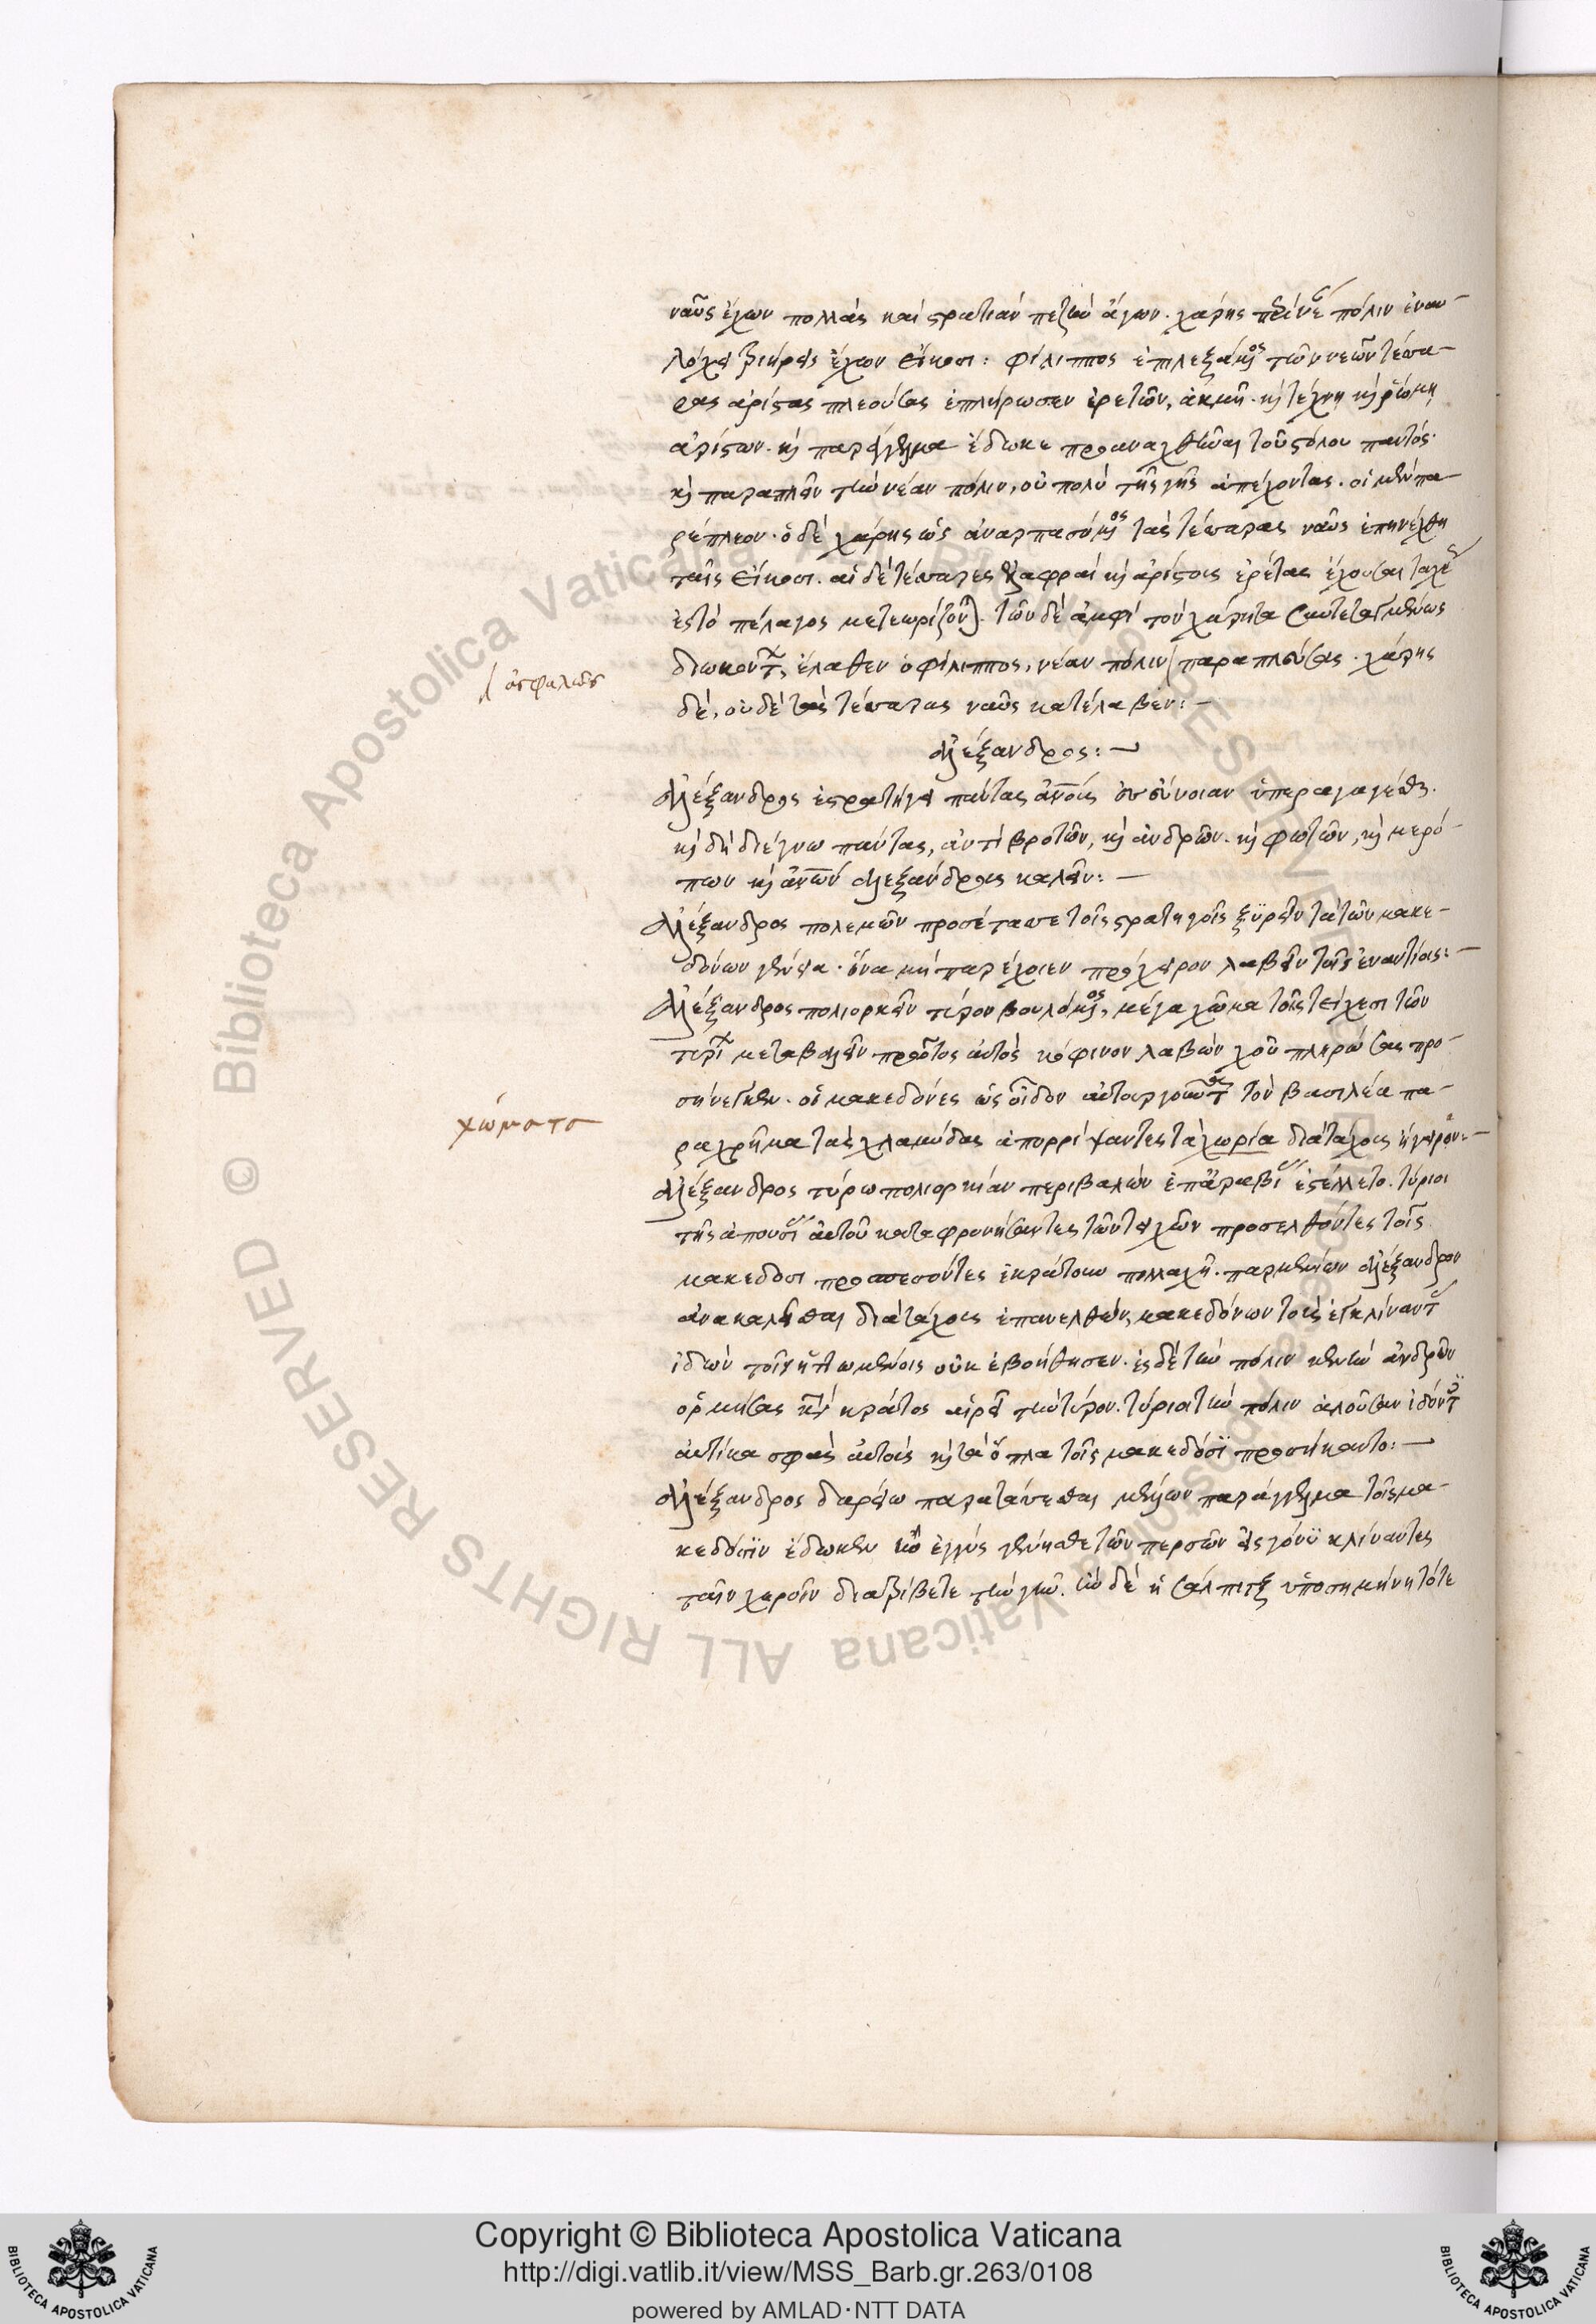 ναῦς ἔχων πολλὰς καὶ στρατιὰν πεζὴν ἄγων. χάρης περὶ νέαν πόλιν ἐναυ-
λόχει τριήρεις ἔχων εἴκοσι: φίλιππος ἐπιλεξάμενος τῶν νεῶν τέσσα-
ρας ἀρίστας πλεούσας ἐπλήρωσεν ἐρετῶν, ἀκμῇ. καὶ τέχνῃ καὶ ῥώμῃ
ἀρίστων. καὶ παράγγελμα ἔδωκε προαναχθῆναι τοῦ στόλου παντός.
καὶ παραπλεῖν τὴν νέαν πόλιν, οὐ πολὺ τῆς γῆς ἀπέχοντας. οἱ μὲν πα-
ρέπλεον. ὁ δὲ χάρης ὡς ἀναρπασόμενος τὰς τέσσαρας ναῦς ἐπηνέχθη
ταῖς εἴκοσι. αἱ δὲ τέσσαρες ἐλαφραὶ καὶ ἀρίστους ἐρέτας ἔχουσαι ταχέως
ἐς τὸ πέλαγος μετεωρίζονται. τῶν δὲ ἀμφὶ τὸν χάρητα συντεταγμένως
διωκόντων, ἔλαθεν ὁ φίλιππος, νέαν πόλιν παραπλεύσας. χάρης
ἀσφαλῶς
δὲ, οὐδὲ τὰς τέσσαρας ναῦς κατέλαβεν:-
ἀλέξανδρος:-
ἀλέξανδρος ἐστρατήγει πάντας ἀνθρώπους ἐς εὔνοιαν ὑπεραγαγέσθαι.
καὶ δὴ διέγνω πάντας, ἀντὶ βροτῶν, καὶ ἀνδρῶν. καὶ φωτῶν, καὶ μερό-
πων καὶ ἀνθρώπων ἀλεξάνδρους καλεῖν:-
ἀλέξανδρος πολεμῶν προσέτασσε τοῖς στρατηγοῖς ξυρεῖν τὰ τῶν μακε-
δόνων γένεια. ἵνα μὴ παρέχοιεν πρόχειρον λαβεῖν τοῖς ἐναντίοις:-
ἀλέξανδρος πολιορκεῖν τύρον βουλόμενος, μέγα χῶμα τοῖς τείχεσι τῶν
τυρίων μεταβαλεῖν πρῶτος αὐτὸς κόφινον λαβὼν χοῦ πληρώσας προ-
σήνεγκεν. οἱ μακεδόνες ὡς εἶδον αὐτουργοῦντα τὸν βασιλέα πα-
χώματα
ραχρῆμα τὰς χλαμύδας ἀπορρίψαντες τὰ χωρία διὰ τάχους ἤγειρον:-
ἀλέξανδρος τύρῳ πολιορκίαν περιβαλὼν ἐπ' ἀραβίας ἐστέλλετο. τύριοι
τῆς ἀπουσίας αὐτοῦ καταφρονήσαντες τῶν τειχῶν προσελθόντες τοῖς
μακεδόσι προσπεσόντες ἐκράτουν πολλαχῇ. παρμενίων ἀλέξανδρον
ἀνακαλεῖσθαι διὰ τάχους ἐπανελθὼν, μακεδόνων τοὺς ἐγκλίναντας
ἰδὼν τοῖς ἡττωμένοις οὐκ ἐβοήθησεν. ἐς δὲ τὴν πόλιν κενὴν ἀνδρῶν
ὁρμήσας κατὰ κράτος αἱρεῖ τὴν τύρον. τύριοι τὴν πόλιν ἁλοῦσαν ἰδόντες
αὐτίκα σφᾶς αὐτοὺς καὶ τὰ ὅπλα τοῖς μακεδόσι προσήκαντο:-
ἀλέξανδρος δαρείῳ παρατάσσεσθαι μέλλων παράγγελμα τοῖς μα-
κεδόσιν ἔδωκεν ἢν ἐγγὺς γένησθε τῶν περσῶν εἰς γόνυ κλίναντες
ταῖν χεροῖν διατρίβετε τὴν γῆν. ἢν δὲ ἡ σάλπιγξ ὑποσημήνῃ τότε
Copyright © Biblioteca Apostolica Vaticana
http://digi.vatlib.it/view/MSS_Barb.gr.263/0108
powered by AMLAD·NTT DATA